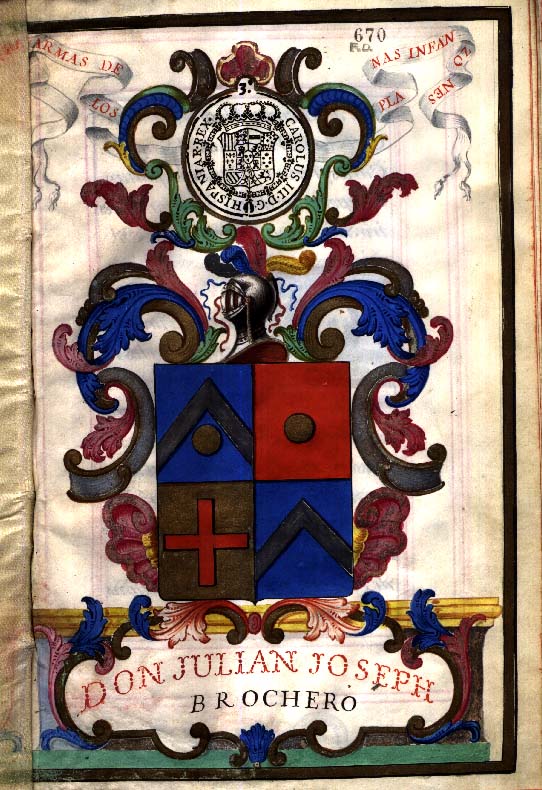 670
ARMAS DE
LOS
PLA
NAS INFAN
ZO
NES
3.
CAROLUS III·D·G·HISPANIAR·REX
DON JULIAN JOSEPH
BROCHERO